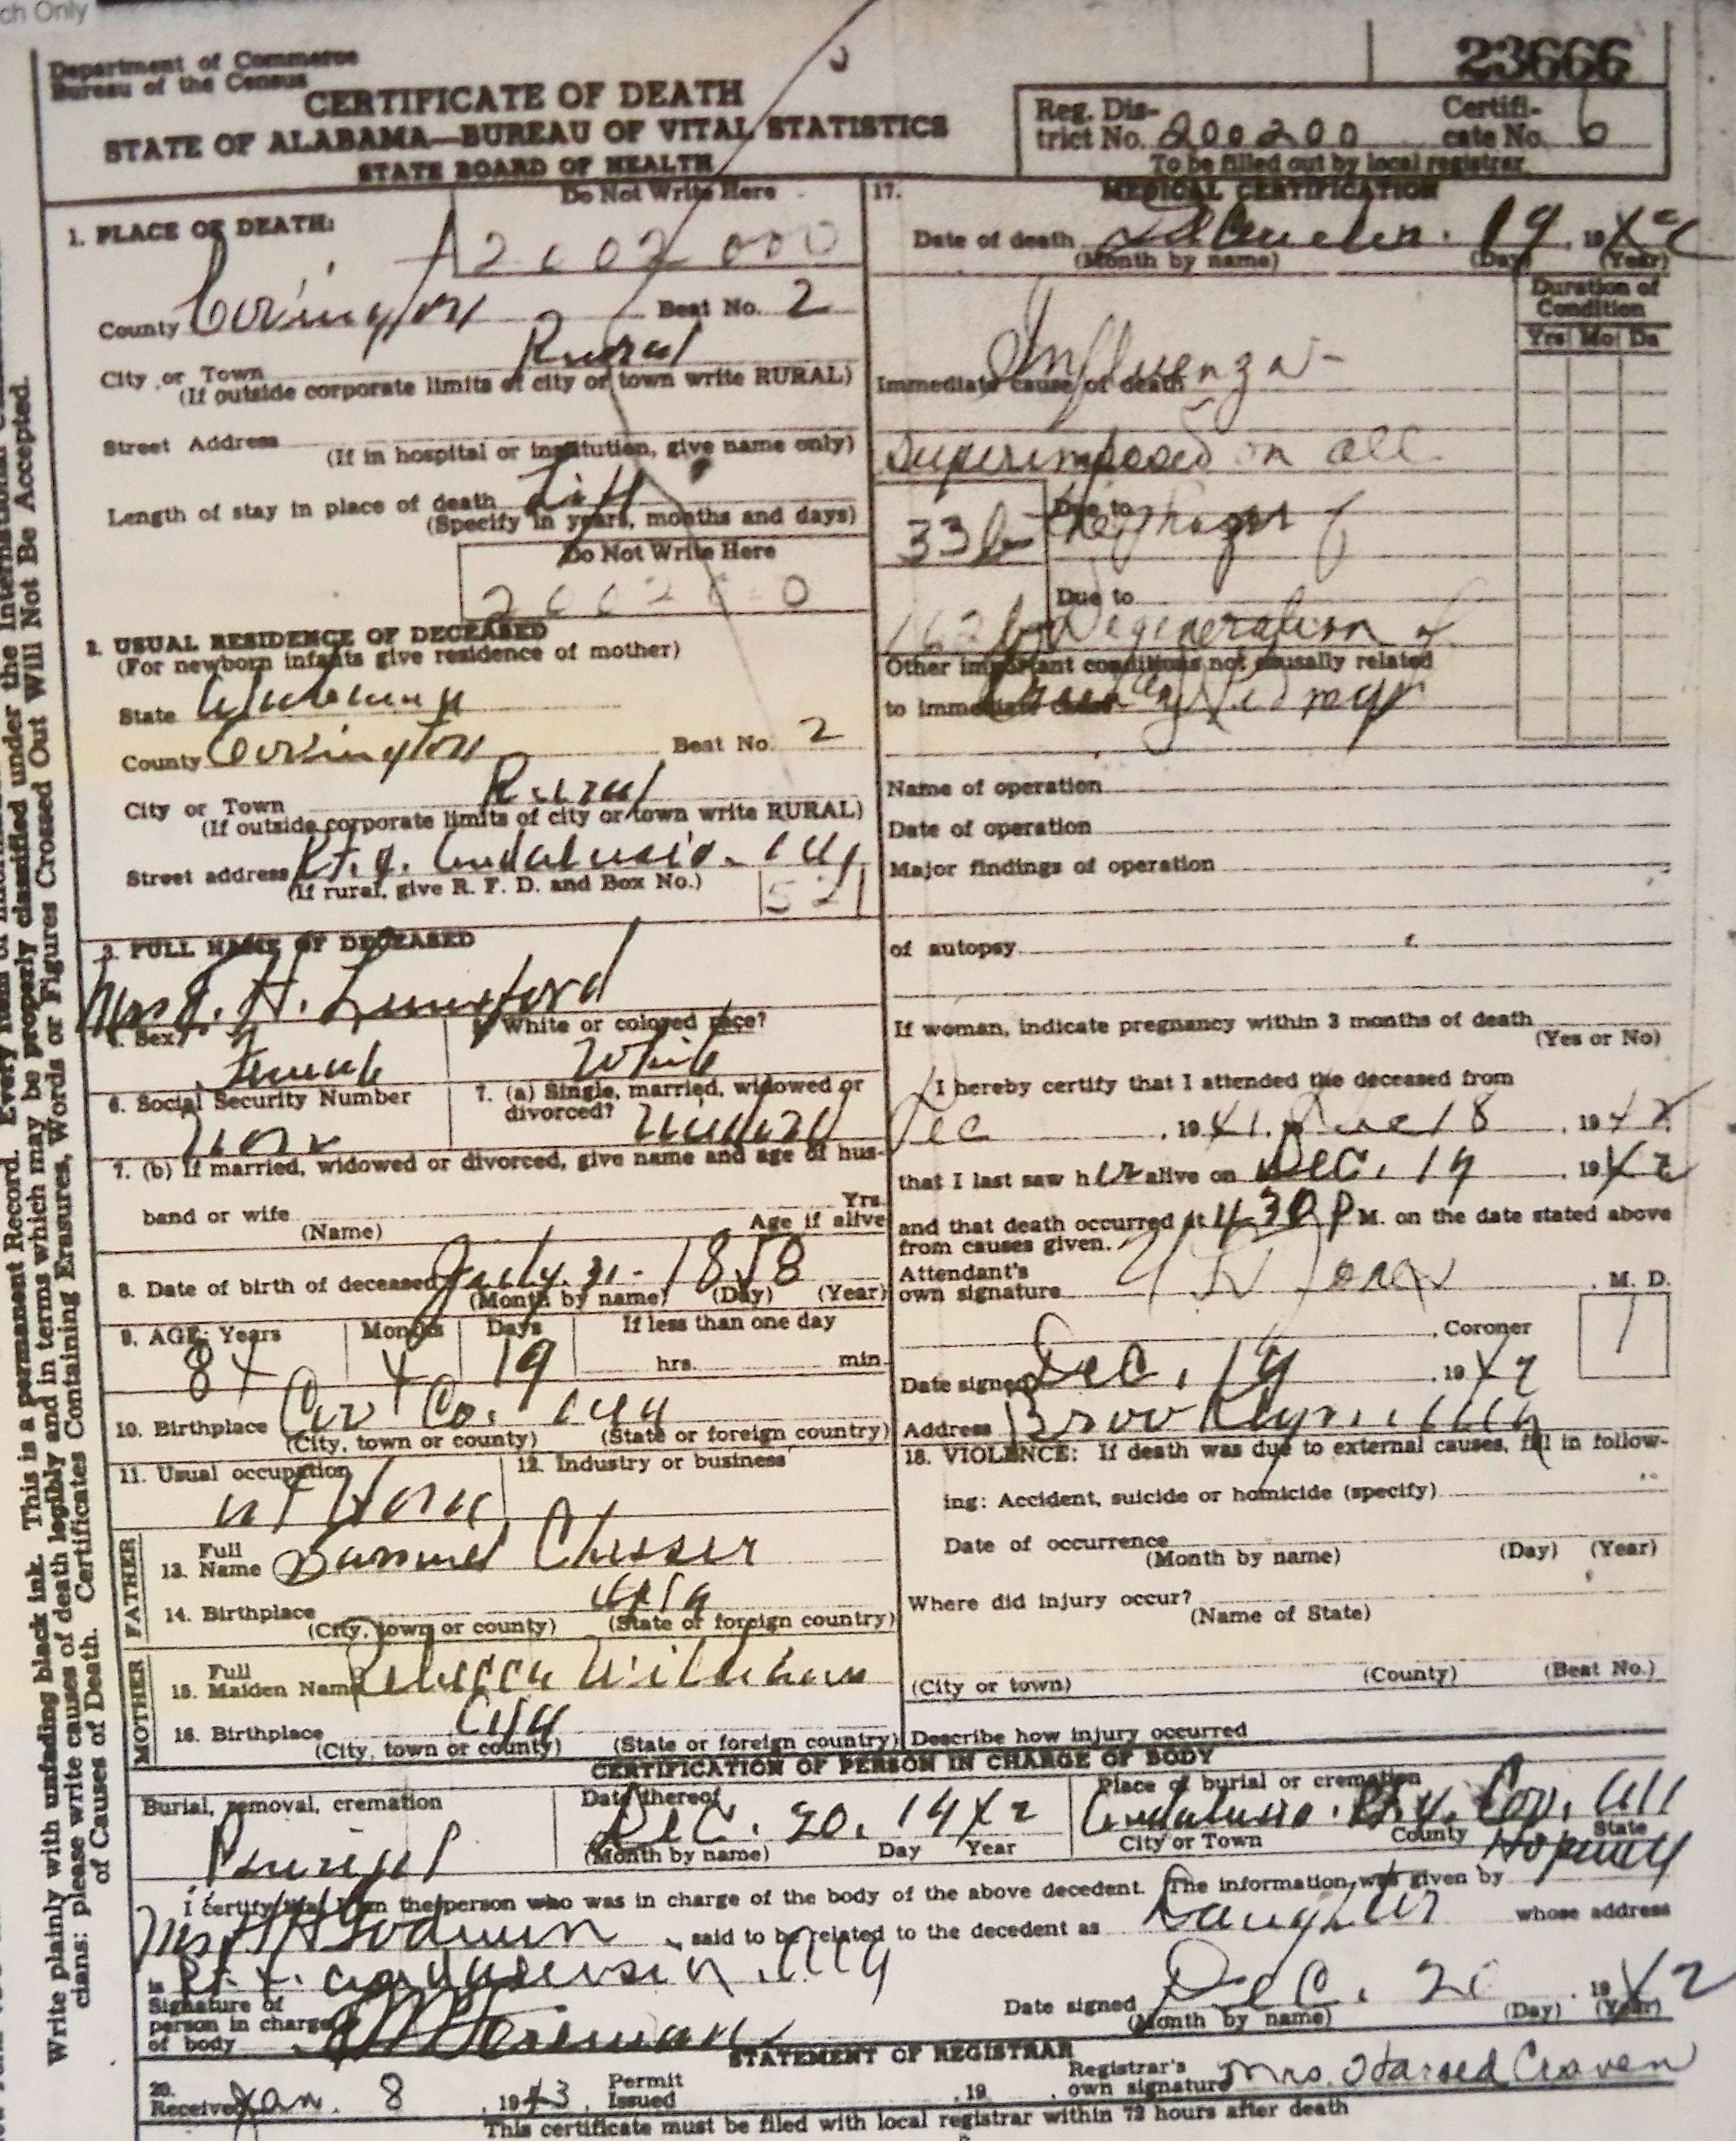 ch Only
Department of Commerce
Bureau of the Census
23666
CERTIFICATE OF DEATH
STATE OF ALABAMA—BUREAU OF VITAL STATISTICS
STATE BOARD OF HEALTH
Reg. Dis-
trict No. 200200
Certifi-
cate No. 6
To be filled out by local registrar.
Do Not Write Here
1. PLACE OF DEATH:
County Covington Beat No. 2
City or Town Rural
(If outside corporate limits of city or town write RURAL)
Street Address
(If in hospital or institution, give name only)
Length of stay in place of death Life
(Specify in years, months and days)
Do Not Write Here
2. USUAL RESIDENCE OF DECEASED
(For newborn infants give residence of mother)
State Alabama
County Covington Beat No. 2
City or Town Rural
(If outside corporate limits of city or town write RURAL)
Street address Andalusia. Ala
(If rural, give R. F. D. and Box No.)
521
3. FULL NAME OF DECEASED
Mrs J. H. Lunsford
4. Sex? Female
5. White or colored race? White
6. Social Security Number None
7. (a) Single, married, widowed or
divorced? Widowed
7. (b) If married, widowed or divorced, give name and age of hus-
band or wife Yrs.
(Name) Age if alive
8. Date of birth of deceased July. 31- 1858
(Month by name) (Day) (Year)
9. AGE: Years Months Days If less than one day
84 4 19 hrs. min.
10. Birthplace Cov Co. Ala
(City, town or county) (State or foreign country)
11. Usual occupation at Home
12. Industry or business
FATHER
13. Full
Name Samuel Chesser
14. Birthplace Ala
(City, town or county) (State or foreign country)
MOTHER
15. Full
Maiden Name Rebecca
16. Birthplace Ala
(City, town or county) (State or foreign country)
17. MEDICAL CERTIFICATION
Date of death December. 19, 1942
(Month by name) (Day) (Year)
Duration of
Condition
Yrs Mo Da
Immediate cause of death Influenza-
superimposed on all
Due to
33b
Due to
162b Degeneration of
Other important conditions not causally related
to immediate cause Kidneys
Name of operation
Date of operation
Major findings of operation
of autopsy
If woman, indicate pregnancy within 3 months of death
(Yes or No)
I hereby certify that I attended the deceased from
Dec , 1941, to Dec 18 , 1942
that I last saw her alive on Dec. 19 , 1942
and that death occurred at 430 P M. on the date stated above
from causes given.
Attendant's
own signature Jones , M. D.
, Coroner
1
Date signed Dec. 19 , 1942
Address Brooklyn. Ala
18. VIOLENCE: If death was due to external causes, fill in follow-
ing: Accident, suicide or homicide (specify)
Date of occurrence
(Month by name) (Day) (Year)
Where did injury occur?
(Name of State)
(City or town) (County) (Beat No.)
Describe how injury occurred
CERTIFICATION OF PERSON IN CHARGE OF BODY
Burial, removal, cremation
Burial
Date thereof
Dec. 20. 1942
(Month by name) Day Year
Place of burial or cremation
Andalusia. Rt. 4. Cov. Ala
City or Town County State
Hopewell
I certify that I am the person who was in charge of the body of the above decedent. The information was given by
Mrs H H Godwin , said to be related to the decedent as Daughter whose address
is Rt. 4. Andalusia. Ala
Signature of
person in charge
of body
Date signed Dec. 20 , 1942
(Month by name) (Day) (Year)
STATEMENT OF REGISTRAR
20.
Received Jan. 8 , 1943. Permit
Issued , 19 . Registrar's
own signature Mrs. Craven
This certificate must be filed with local registrar within 72 hours after death
Write plainly with unfading black ink. This is a permanent Record.
cians: please write causes of death legibly and in terms which may be properly classified under the International
of Causes of Death. Certificates Containing Erasures, Words or Figures Crossed Out Will Not Be Accepted.